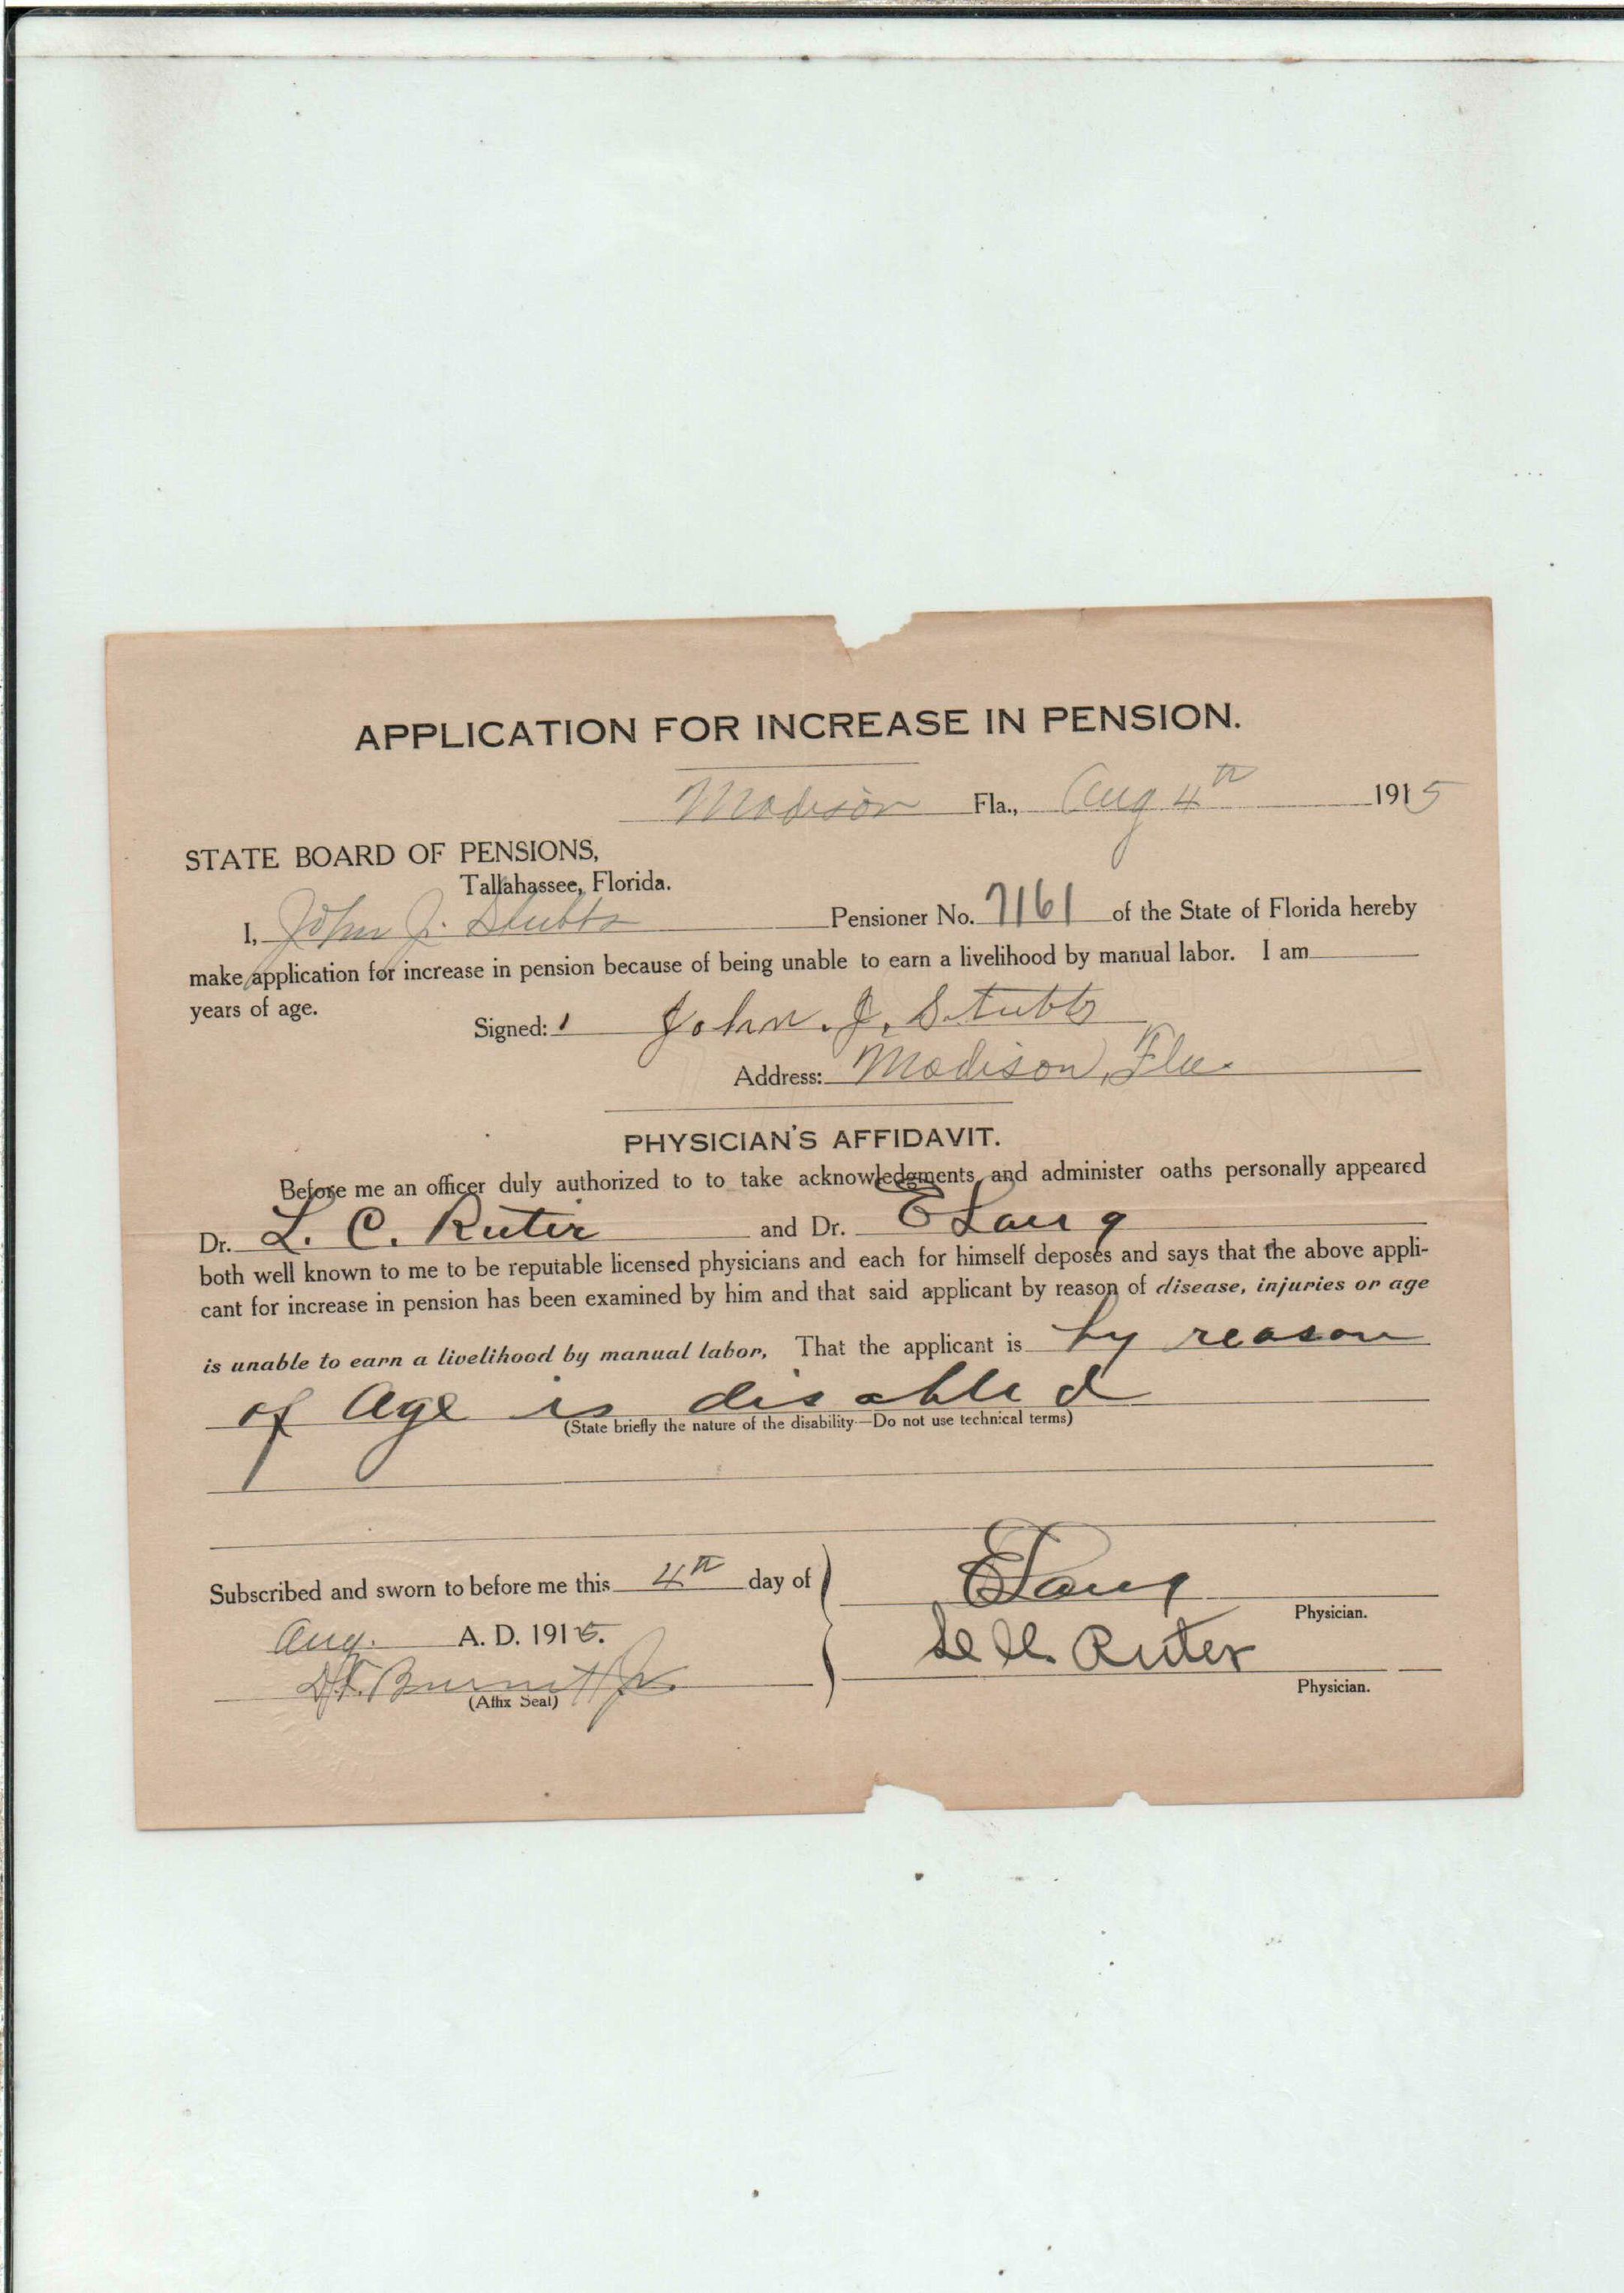 APPLICATION FOR INCREASE IN PENSION.
Madison Fla., Aug 4th 1915
STATE BOARD OF PENSIONS,
Tallahassee, Florida.
I, John J. Stubbs Pensioner No. 7161 of the State of Florida hereby
make application for increase in pension because of being unable to earn a livelihood by manual labor. I am
years of age.
Signed: John. J. Stubbs
Address: Madison, Fla.
PHYSICIAN'S AFFIDAVIT.
Before me an officer duly authorized to to take acknowledgments and administer oaths personally appeared
Dr. L. C. Ruter and Dr. E Lang
both well known to me to be reputable licensed physicians and each for himself deposes and says that the above appli-
cant for increase in pension has been examined by him and that said applicant by reason of disease, injuries or age
is unable to earn a livelihood by manual labor, That the applicant is by reason
of Age is disabled
(State briefly the nature of the disability—Do not use technical terms)
Subscribed and sworn to before me this 4th day of
Aug. A. D. 1915.
Burnett Jr.
(Affix Seal)
E Lang
Physician.
Ruter
Physician.